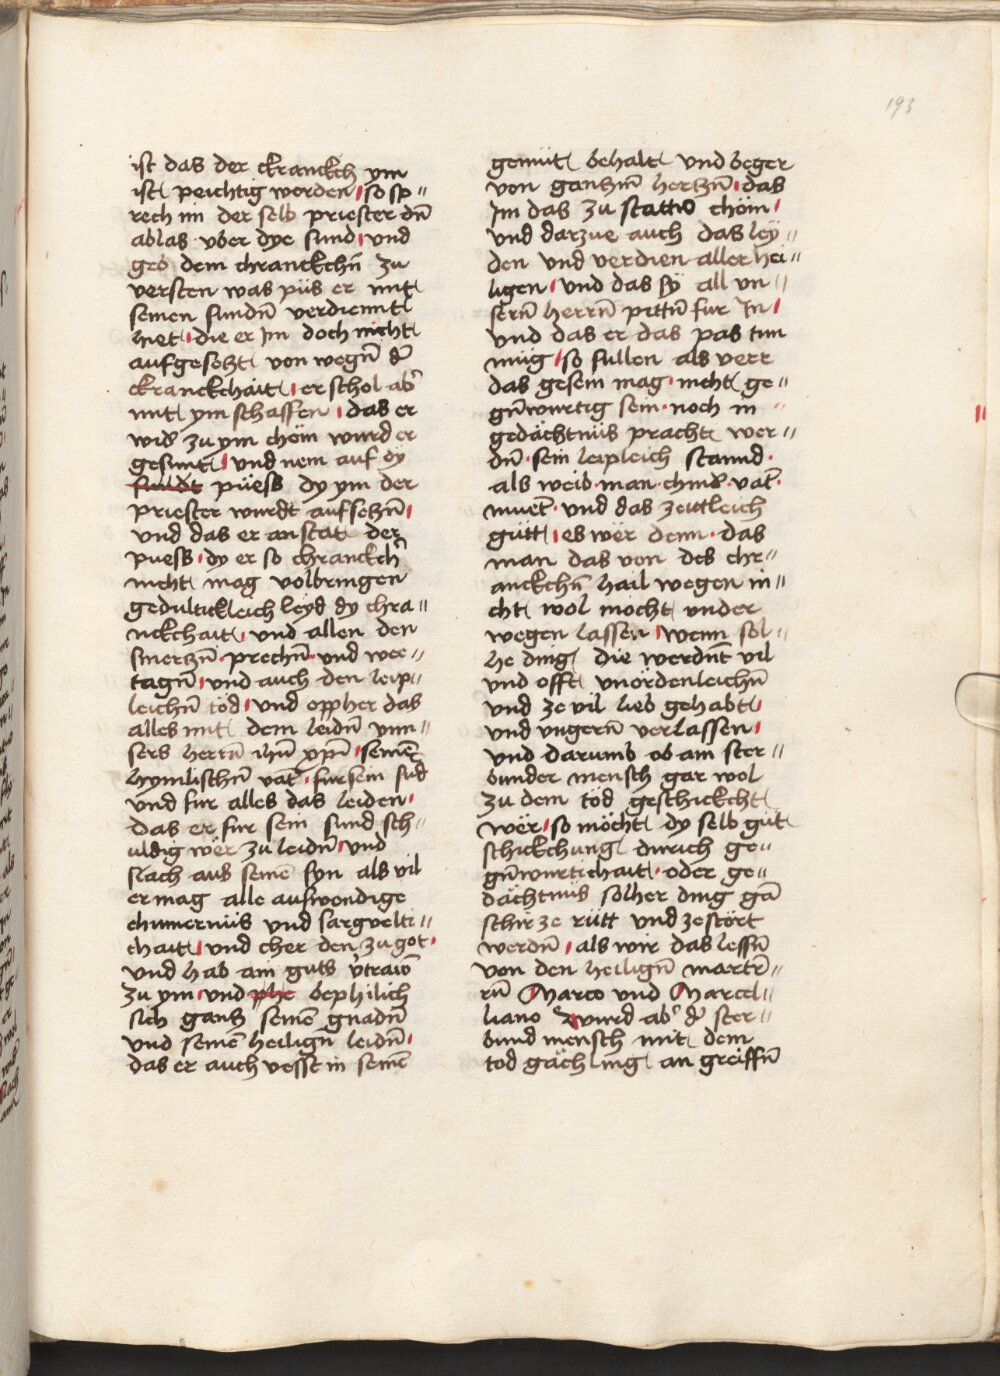 193
ist das der chranckch ym
ist peichtig worden so sp〃
rech im der selb priester dn̄
ablas vber dye sund und
geb dem chranckchn̄ zu
versten was püs er mit
seinen sundn̄ verdiennt
hiet die er Im doch nicht
aufgeseczt von wegn̄ d̄
chranckchait er schol ab̄
mit ym schaffen das er
wid̄ zu ym chöm wurd er
gesunt und nem auf dy
püess dy ym der
priester wurdt aufseczn̄
und das er anstat der
puess dy er so chranckch
nicht mag volbringen
gedultickleich leyd dy chra〃
nckchait und allen den
smerczn̄ prechn̄ und wee〃
tagn̄ und auch den leip〃
leichn̄ tod und oppher das
alles mit dem leidn̄ vnn〃
sers herrn̄ ihū xp̄i seinē
hymlischn̄ vat̄ fur sein sūd
und fur alles das leiden
das er fur sein sund sch〃
uldig wër zu leidn̄ und
slach aus seinē syn als vil
er mag alle auswendige
chumernüs und sargvelti〃
chait und cher den zu got
und hab ain guts v̄trawē
zu ym und phe bephilich
sich gancz seinē gnadn̄
und seinē heilign̄ leidn̄
das er auch vesst in seinē
gemüt behalt und beger
von ganczm̄ herczn̄ das
Im das zu statten chöm
und darzue auch das ley〃
den und verdien aller hei〃
ligen und das sy all un〃
sern̄ herrn̄ pittn̄ fur In
und das er das pas tun
müg so sullen als verr
das gesein mag nicht ge〃
gn̄wurtig sein noch in〃
gedächtnüs pracht wer〃
dn̄ sein leipleich stannd
als weib man chind̄ vat̄
muet̄ und das zeittleich
gütt es wër denn das
man das von des chr〃
anckchn̄ hail wegen in〃
cht wol mocht under
wegen lassen wenn sol〃
he ding die werdn̄t vil
und offt unordenleichn̄
und ze vil lieb gehabt
und ungern̄ verlassen
und darumb ob ain ster〃
bunder mensch gar wol
zu dem tod geschickcht
wër so möcht dy selb güt
schickchung durich ge〃
gn̄wurtichait oder ge〃
dächtnüs solher ding gā
schir ze rütt und zestört
werdn̄ als wir das lessn̄
von den heilign̄ martr̄〃
rn̄ Marco und Marcel〃
liano Wurd ab̄ d̄ ster〃
bund mensch mit dem
tod gächling an greiffn̄